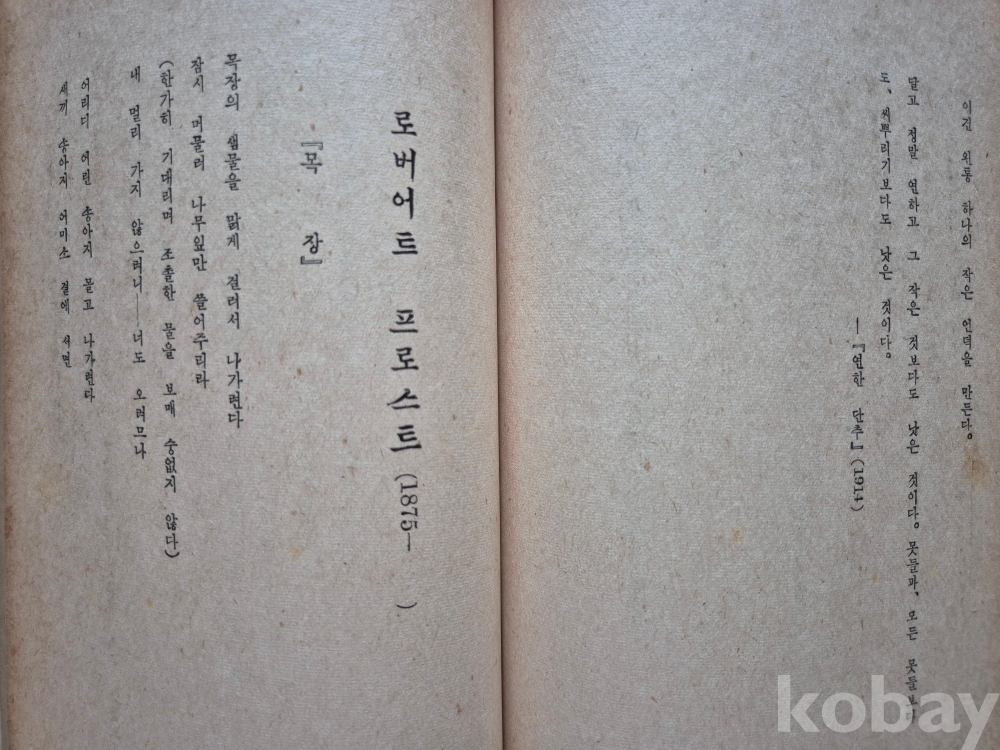 이긴 왼통 하나의 작은 언덕을 만든다。
달고 정말 연하고 그 작은 것보다도 낫은 것이다。 못들과、 모든 못들보다
도、 씨뿌리기보다도 낫은 것이다。
—『연한 단추』(1914)
로버어트 프로스트 (1875— )
『목 장』
목장의 샘물을 맑게 걸러서 나가련다
잠시 머물러 나무잎만 쓸어주리라
(한가히 기대리며 조촐한 물을 보매 숭없지 않다)
내 멀리 가지 않으려니——너도 오려므나
어리디 어린 송아지 몰고 나가련다
세끼 송아지 어미소 곁에 서면
kobay